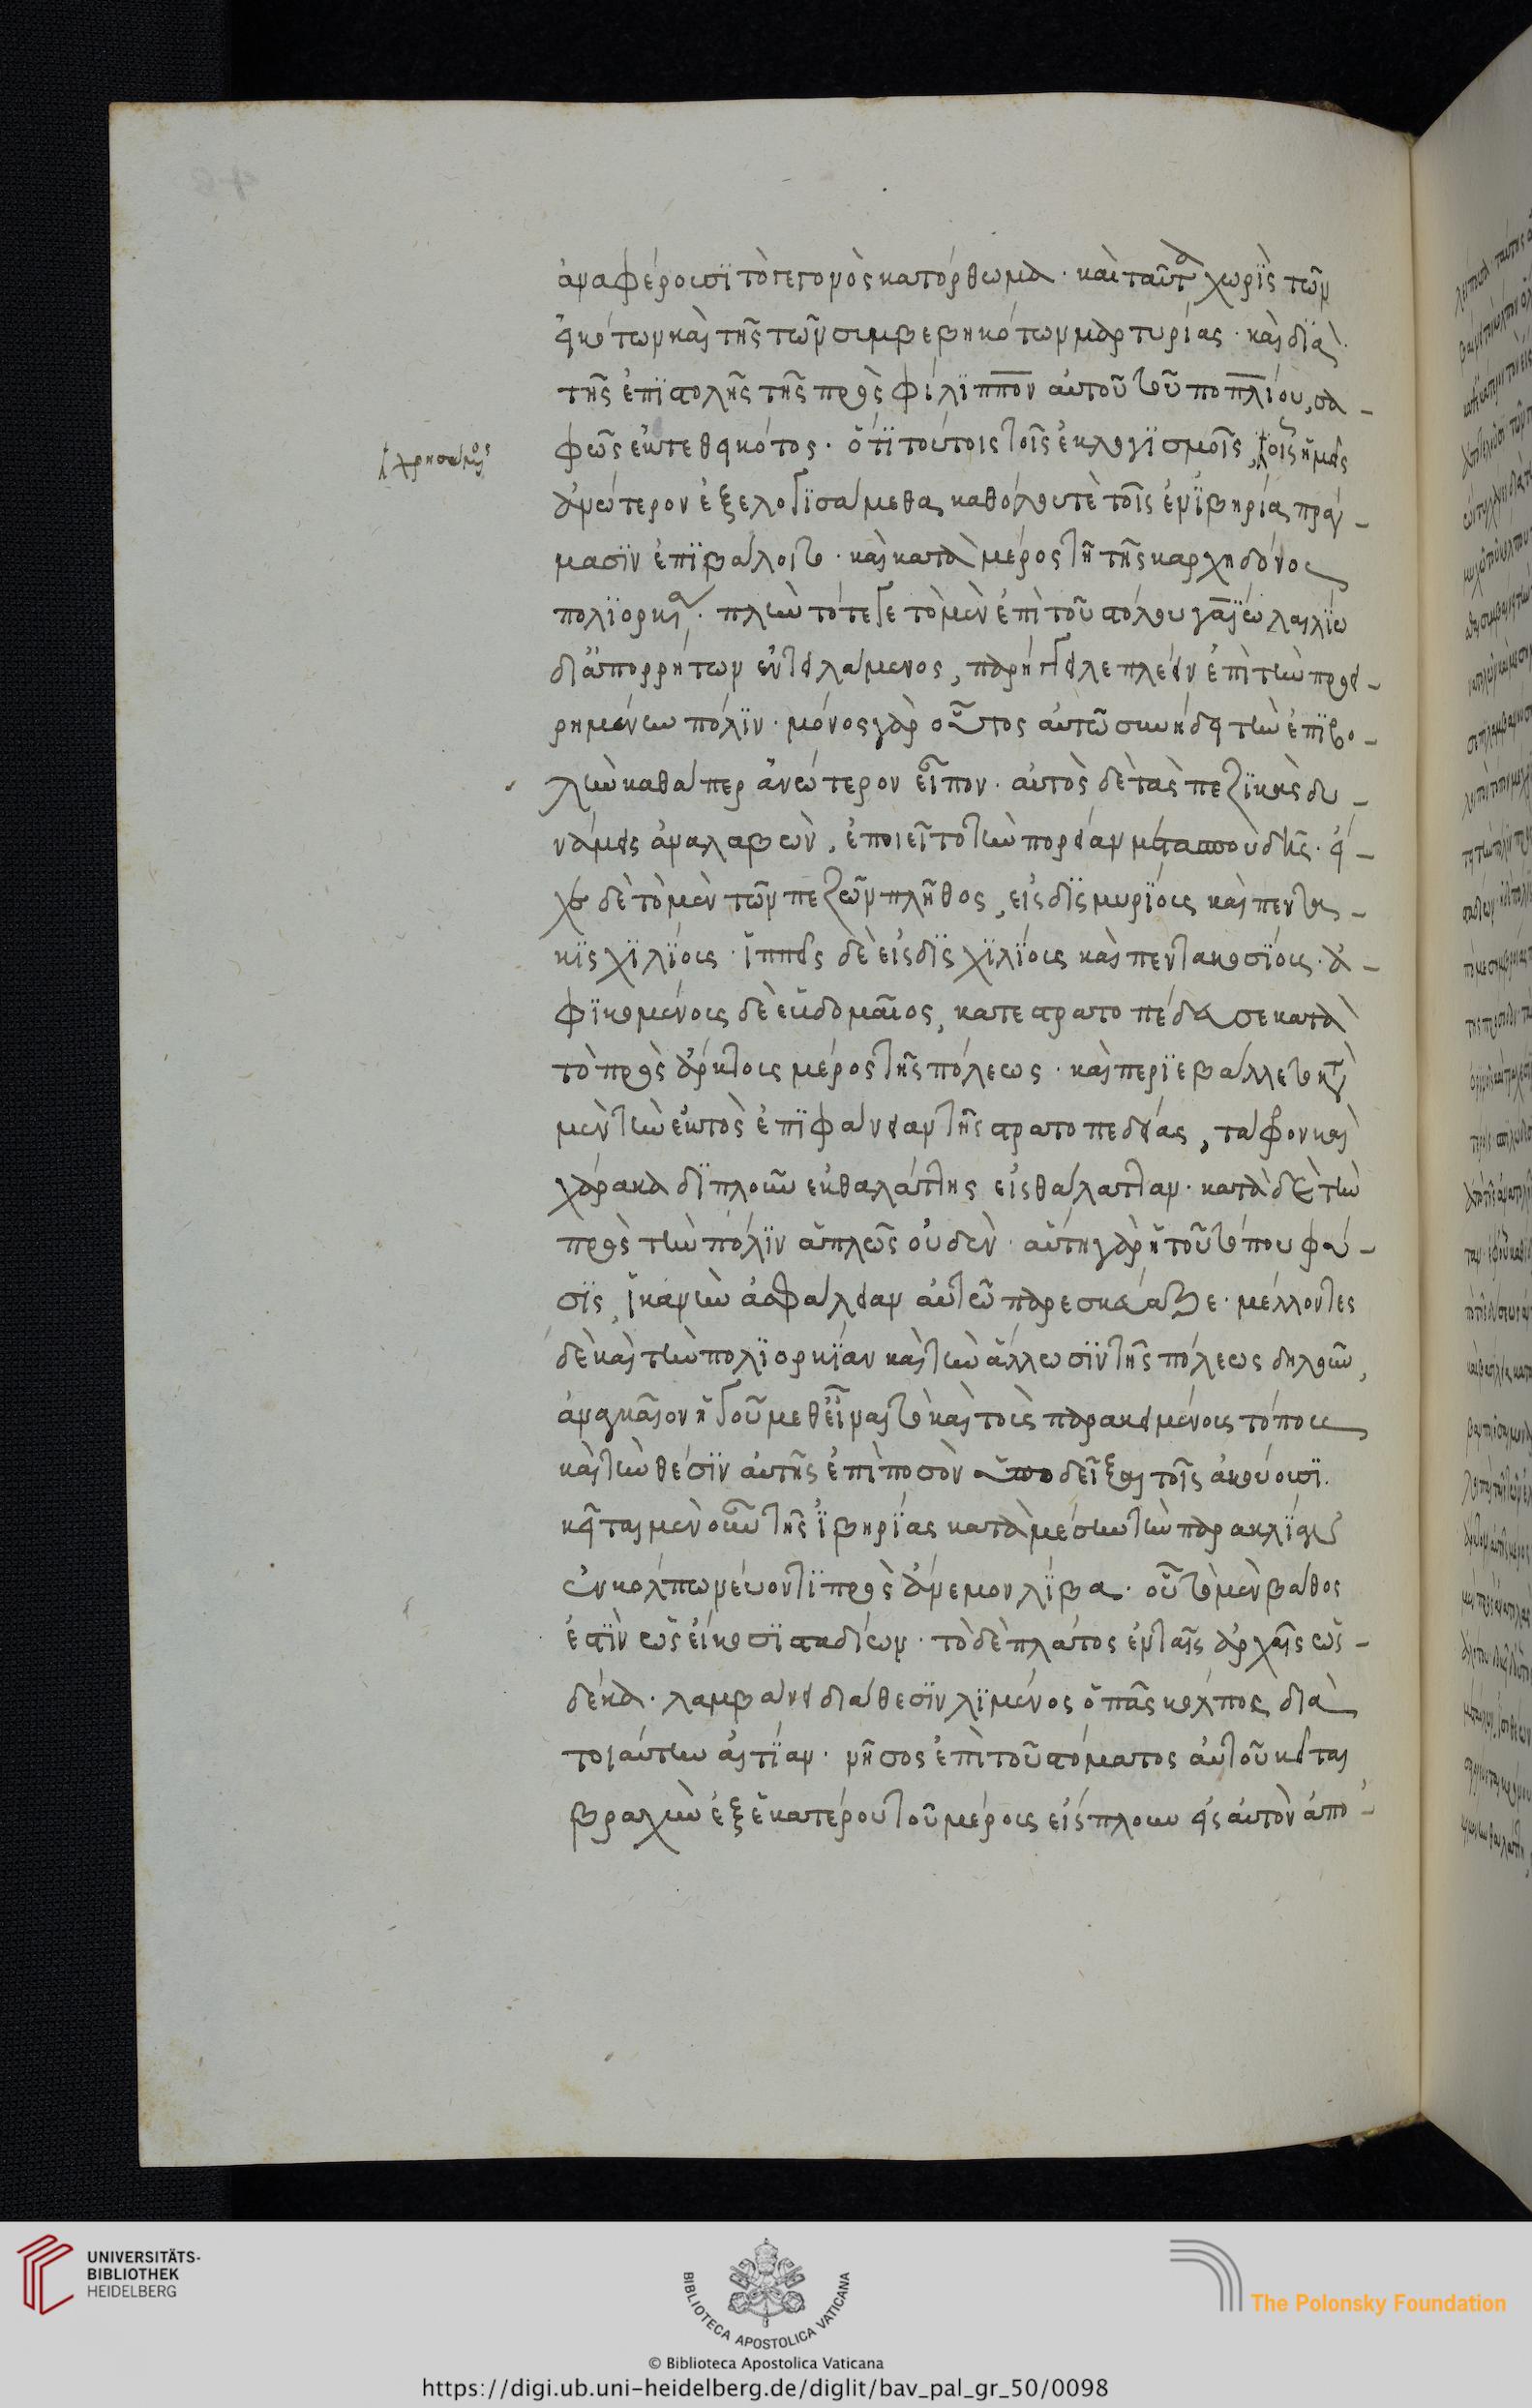 ἀναφέρουσϊ τὸ γεγονὸς κατόρθωμα · καὶ ταῦτα χωρὶς τῶν
εἰκότων καὶ τῆς τῶν συμβεβηκότων μαρτυρίας · καὶ διὰ
τῆς ἐπιστολῆς τῆς πρὸς φίλιππον αὐτοῦ τοῦ ποπλίου, σα-
φῶς ἐκτεθεικότος · ὅτι τούτοις τοῖς ἐκλογισμοῖς, τοῖς ἡμεῖς
ἀνώτερον ἐξελογισάμεθα, καθόλου τὲ τοῖς ἐν ἰβηρία πράγ-
μασιν ἐπιβάλοιτο · καὶ κατὰ μέρος τῆ τῆς καρχηδόνος
πολιορκία · πλὴν τότε γε τὸ μὲν ἐπὶ τοῦ στόλου γαΐω λαιλίω
δι' ἀπορρήτων ἐντειλάμενος, παρήγγειλε πλεῖν ἐπὶ τὴν προει-
ρημένην πόλιν · μόνος γὰρ οὗτος αὐτῶ συνήδει τὴν ἐπιβο-
λὴν καθάπερ ἀνώτερον εἶπον · αὐτὸς δὲ τὰς πεζικὰς δυ-
νάμεις ἀναλαβὼν, ἐποιεῖτο τὴν πορείαν μετὰ σπουδῆς · εἶ-
χε δὲ τὸ μὲν τῶν πεζῶν πλῆθος, εἰς δισμυρίους καὶ πεντα-
κισχιλίους · ἱππεῖς δὲ εἰς δισχιλίους καὶ πεντακοσίους · ἀ-
φικομένους δὲ ἑβδομαῖος, κατεστρατοπέδευσε κατὰ
τὸ πρὸς ἄρκτους μέρος τῆς πόλεως · καὶ περιεβάλλετο κατὰ
μὲν τὴν ἐκτὸς ἐπιφάνειαν τῆς στρατοπεδείας, τάφρον καὶ
χάρακα διπλοῦν ἐκ θαλάττης εἰς θάλατταν · κατὰ δὲ τὴν
πρὸς τὴν πόλιν ἁπλῶς οὐδέν · αὐτὴ γὰρ ἡ τοῦ τόπου φύ-
σις, ἱκανὴν ἀσφάλειαν αὐτῶ παρεσκεύαζε · μέλλοντες
δὲ καὶ τὴν πολιορκίαν καὶ τὴν ἅλλωσιν τῆς πόλεως δηλοῦν,
ἀναγκαῖον ἡγοῦμεθ' εἶναι τὸ καὶ τοὺς παρακειμένους τόπους
καὶ τὴν θέσιν αὐτῆς ἐπὶ ποσὸν ὑποδεῖξαι τοῖς ἀκούουσι.
κεῖται μὲν οὖν τῆς ἰβηρίας κατὰ μέσην τὴν παρακλίαν
ἐν κόλπω νεύοντι πρὸς ἄνεμον λίβα · οὗ τὸ μὲν βάθος
ἐστὶν ὡς εἴκοσι σταδίων · τὸ δὲ πλάτος ἐν ταῖς ἀρχαῖς ὡς
δέκα · λαμβάνει διάθεσιν λιμένος ὁ πᾶς κόλπος διὰ
τοιαύτην αἰτίαν · νῆσος ἐπὶ τοῦ στόματος αὐτοῦ κεῖται
βραχὺν ἐξ ἑκατέρου τοῦ μέρους εἴσπλουν εἰς αὐτὸν ἀπο-
UNIVERSITÄTS-
BIBLIOTHEK
HEIDELBERG
BIBLIOTECA APOSTOLICA VATICANA
The Polonsky Foundation
© Biblioteca Apostolica Vaticana
https://digi.ub.uni-heidelberg.de/diglit/bav_pal_gr_50/0098